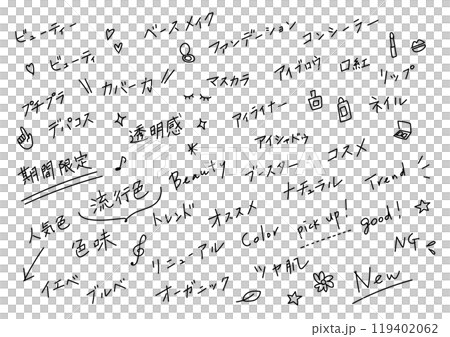 ビューティー
ベースメイク
ファンデーション
コンシーラー
ビューティ
カバー力
マスカラ
アイブロウ
口紅
リップ
プチプラ
デパコス
透明感
アイライナー
ネイル
期間限定
アイシャドウ
コスメ
流行色
Beauty
ブースター
ナチュラル
Trend
人気色
色味
トレンド
オススメ
Color
pick up!
good!
NG
イエベ
ブルベ
リニューアル
オーガニック
ツヤ肌
New
pixta.jp - 119402062